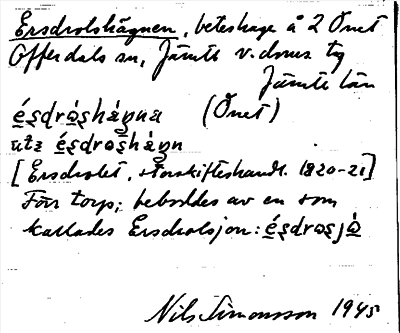 Ersdrolshägnen, beteshage å 2 Önet
Offerdals sn, Jämtl v. doms tg
Jämtl län
é̱sdrò̱shàŋna (Önet)
utz é̱sdrəshàŋn
[Ersdrolet, storskifteshandl. 1820-21]
Förr torp; beboddes av en som
kallades Ersdrolsjon: é̱sdrəsjò̱
Nils Simonsson 1945